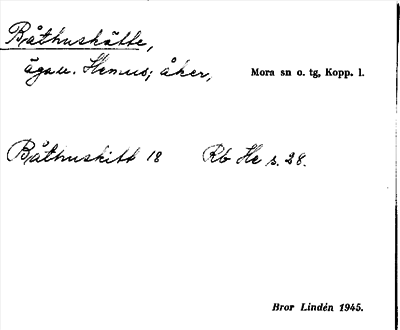 Båthushätte,
äga u. Hemus; åker, Mora sn o. tg, Kopp. l.
Båthuskitt 18 Rb He s. 28.
Bror Lindén 1945.